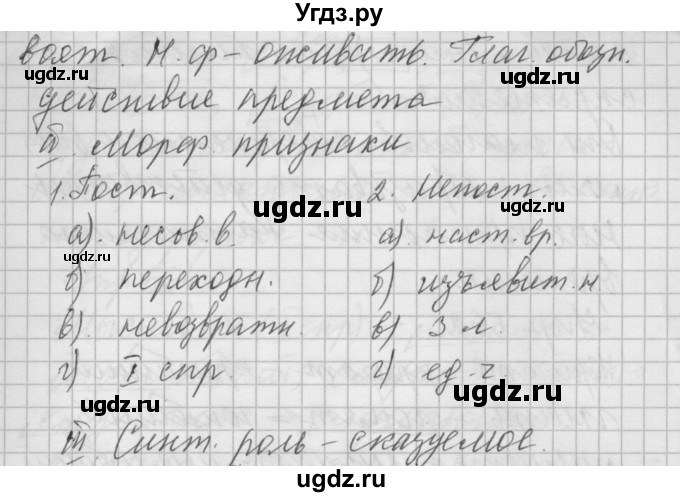 Угдз.ру
вает. Н. ф – оживать. Глаг. обозн.
действие предмета
II. Морф. признаки
1. Пост. 2. Непост.
а). несов. в. а). наст. вр.
б) переходн. б) изъявит. н
в). невозвратн. в) 3 л.
г) I спр. г) ед. ч.
III. Синт. роль – сказуемое.
ugdz.ru
ugdz.ru
ugdz.ru
ugdz.ru
ugdz.ru
ugdz.ru
ugdz.ru
ugdz.ru
ugdz.ru
ugdz.ru